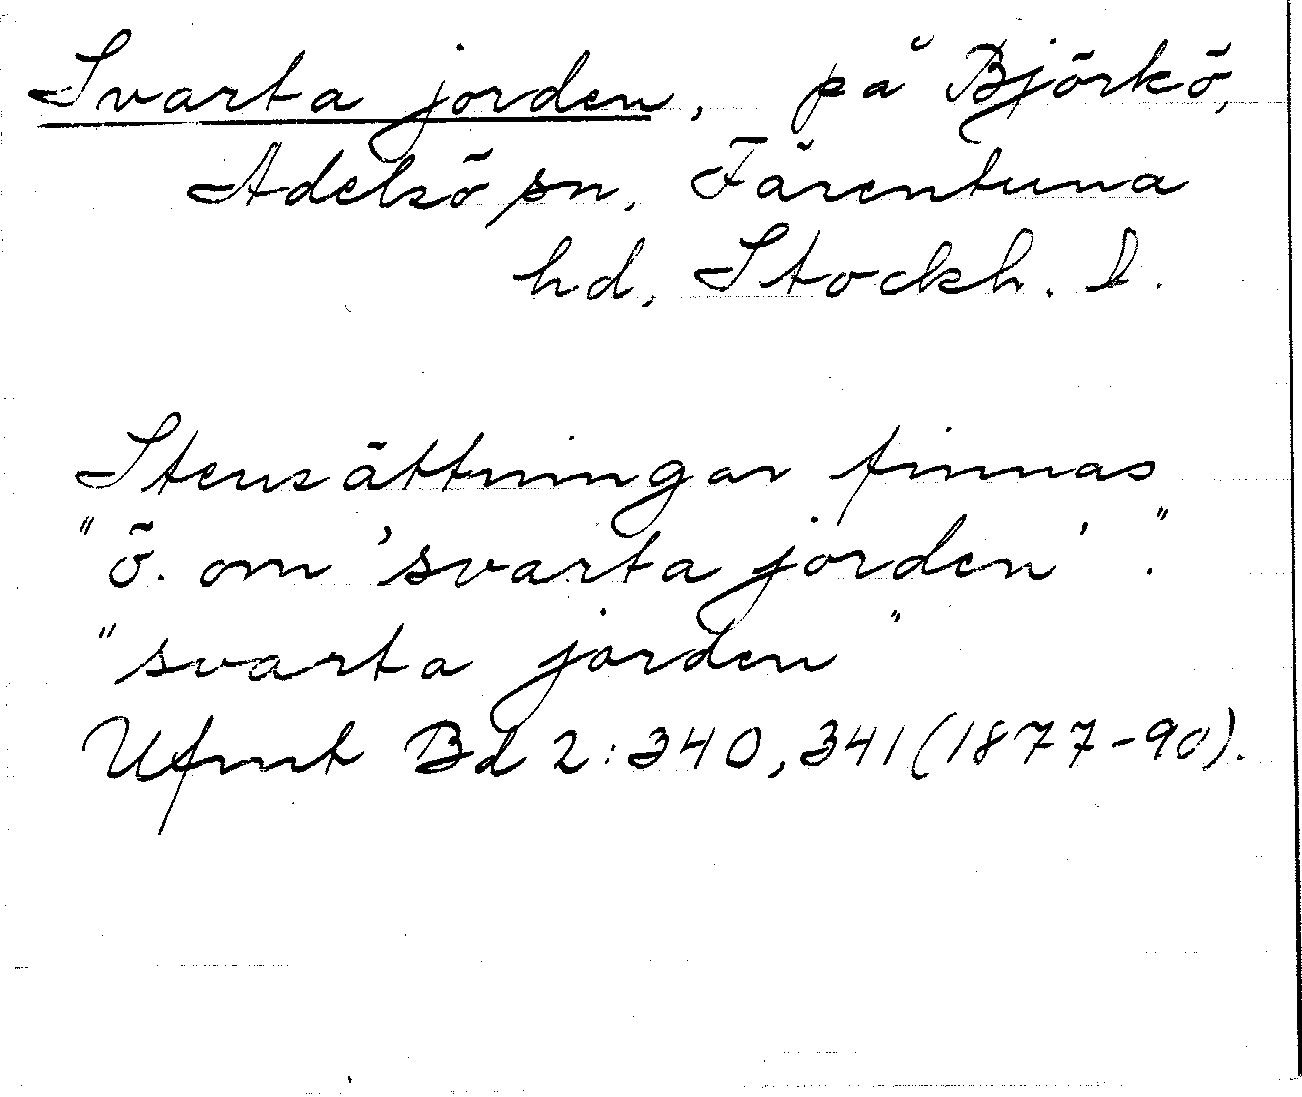 Svarta jorden, på Björkö,
Adelsö sn, Färentuna
hd, Stockh. l.
Stensättningar finnas
"ö. om 'svarta jorden'."
"svarta jorden"
Ufmt Bd 2:340, 341 (1877-90).